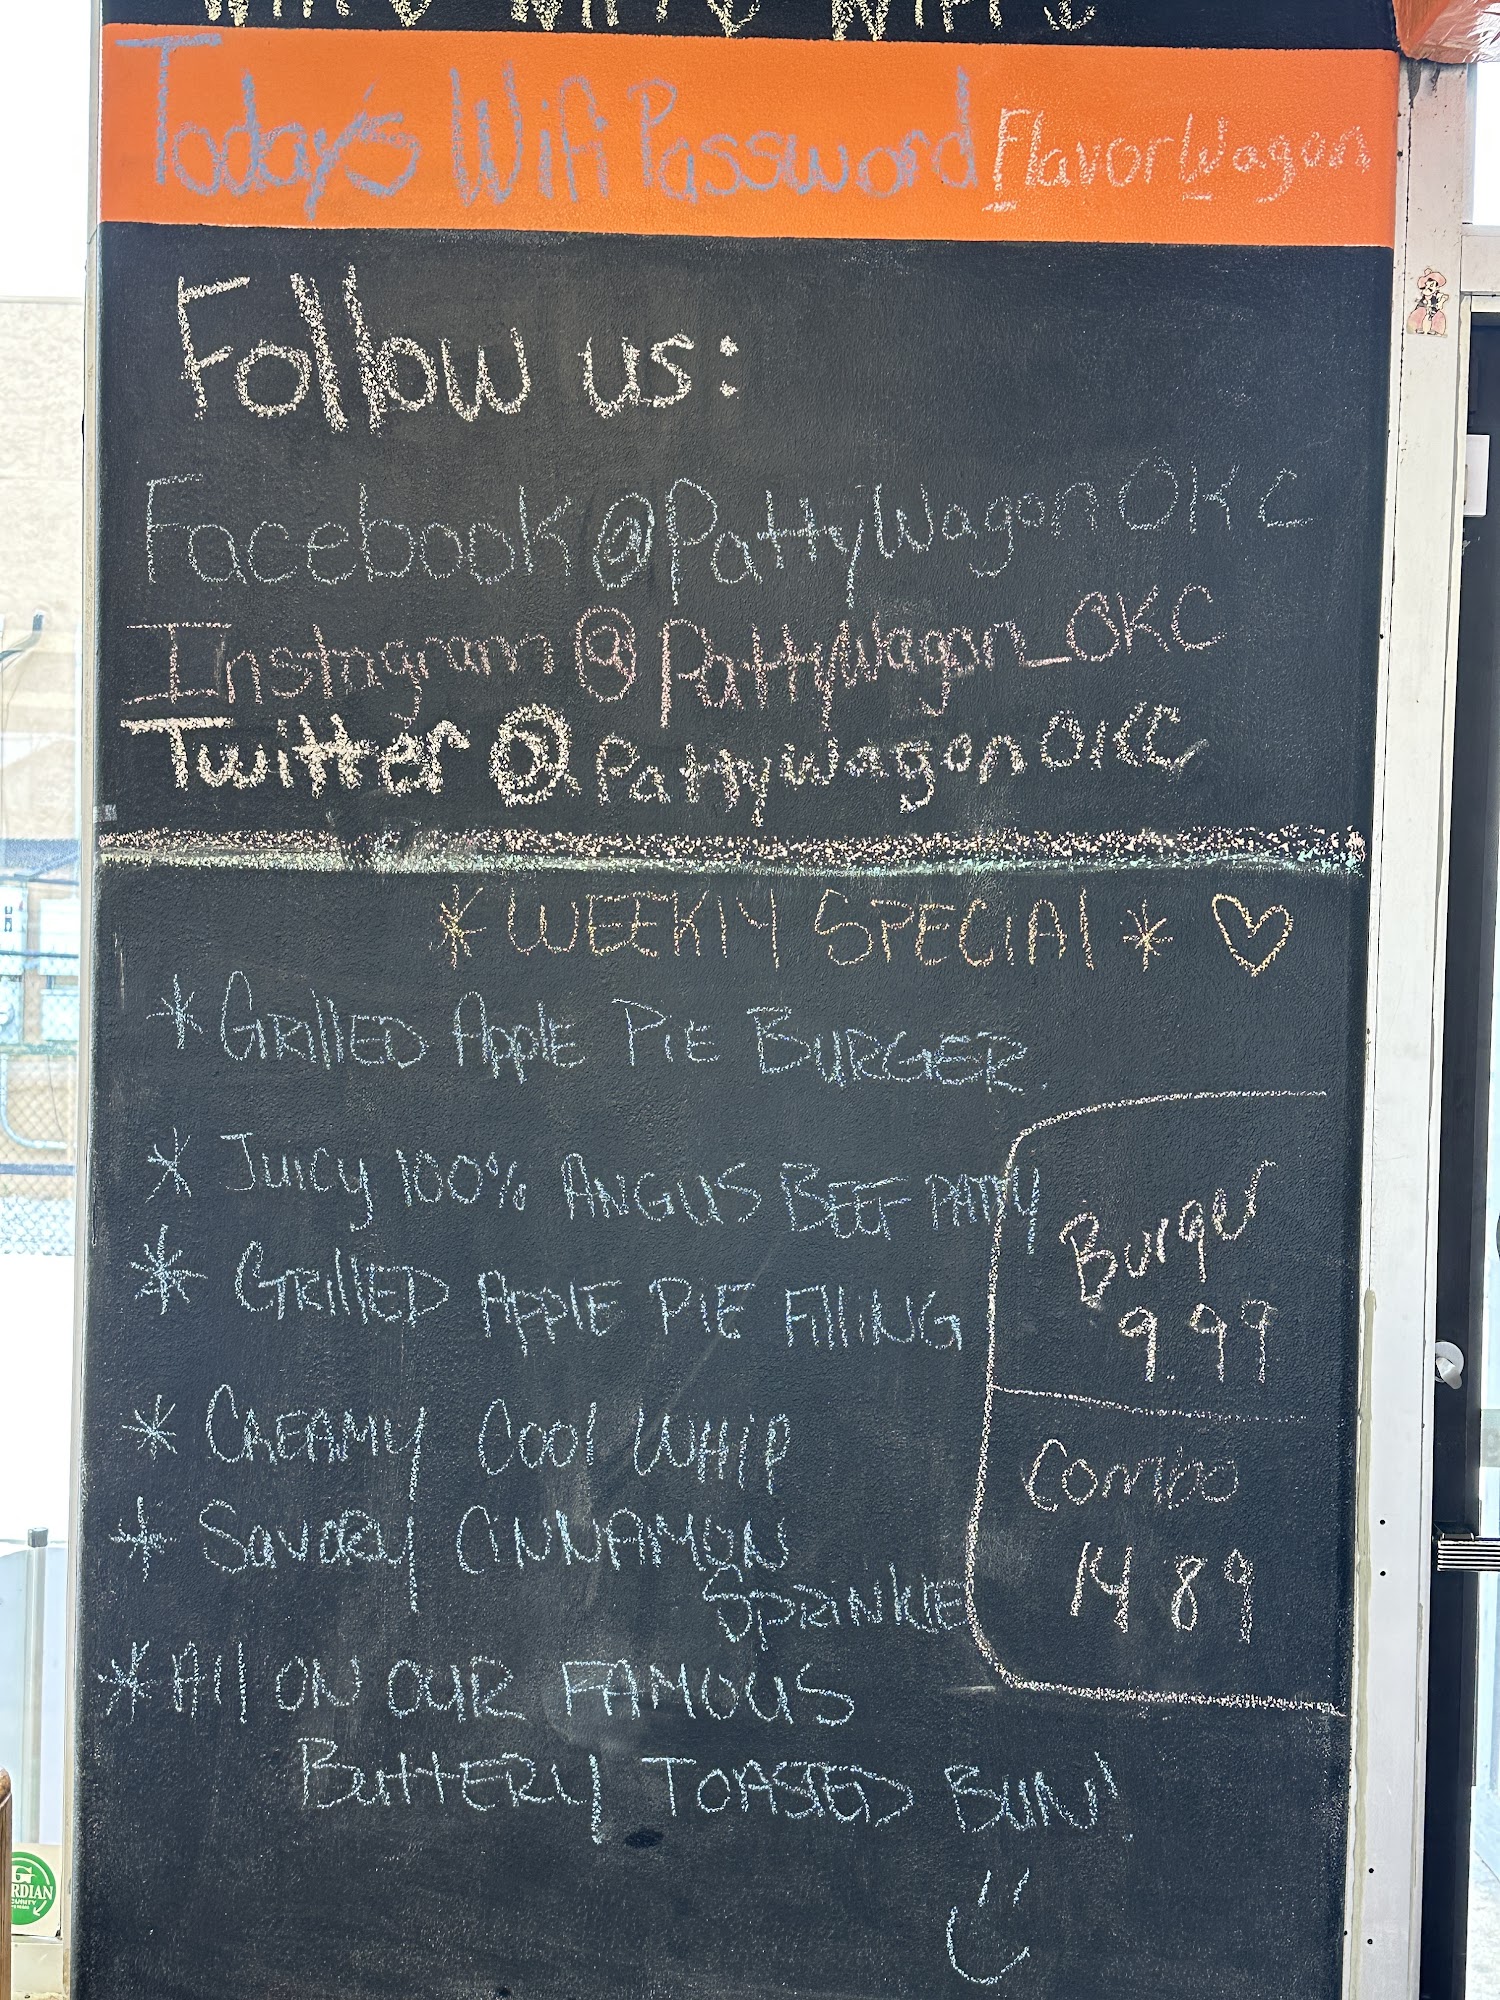 Today's Wifi Password FlavorWagon
Follow us:
Facebook @PattyWagonOKC
Instagram @PattyWagon_OKC
Twitter @PattyWagonOKC
*WEEKLY SPECIAL* ♡
*GRILLED APPLE PIE BURGER
* JUICY 100% ANGUS BEEF PATTY
* GRILLED APPLE PIE FILLING
* CREAMY COOL WHIP
* SAVORY CINNAMON
SPRINKLE
*All ON OUR FAMOUS
BUTTERY TOASTED BUN!
Burger
9.99
Combo
14 89
G
RDIAN